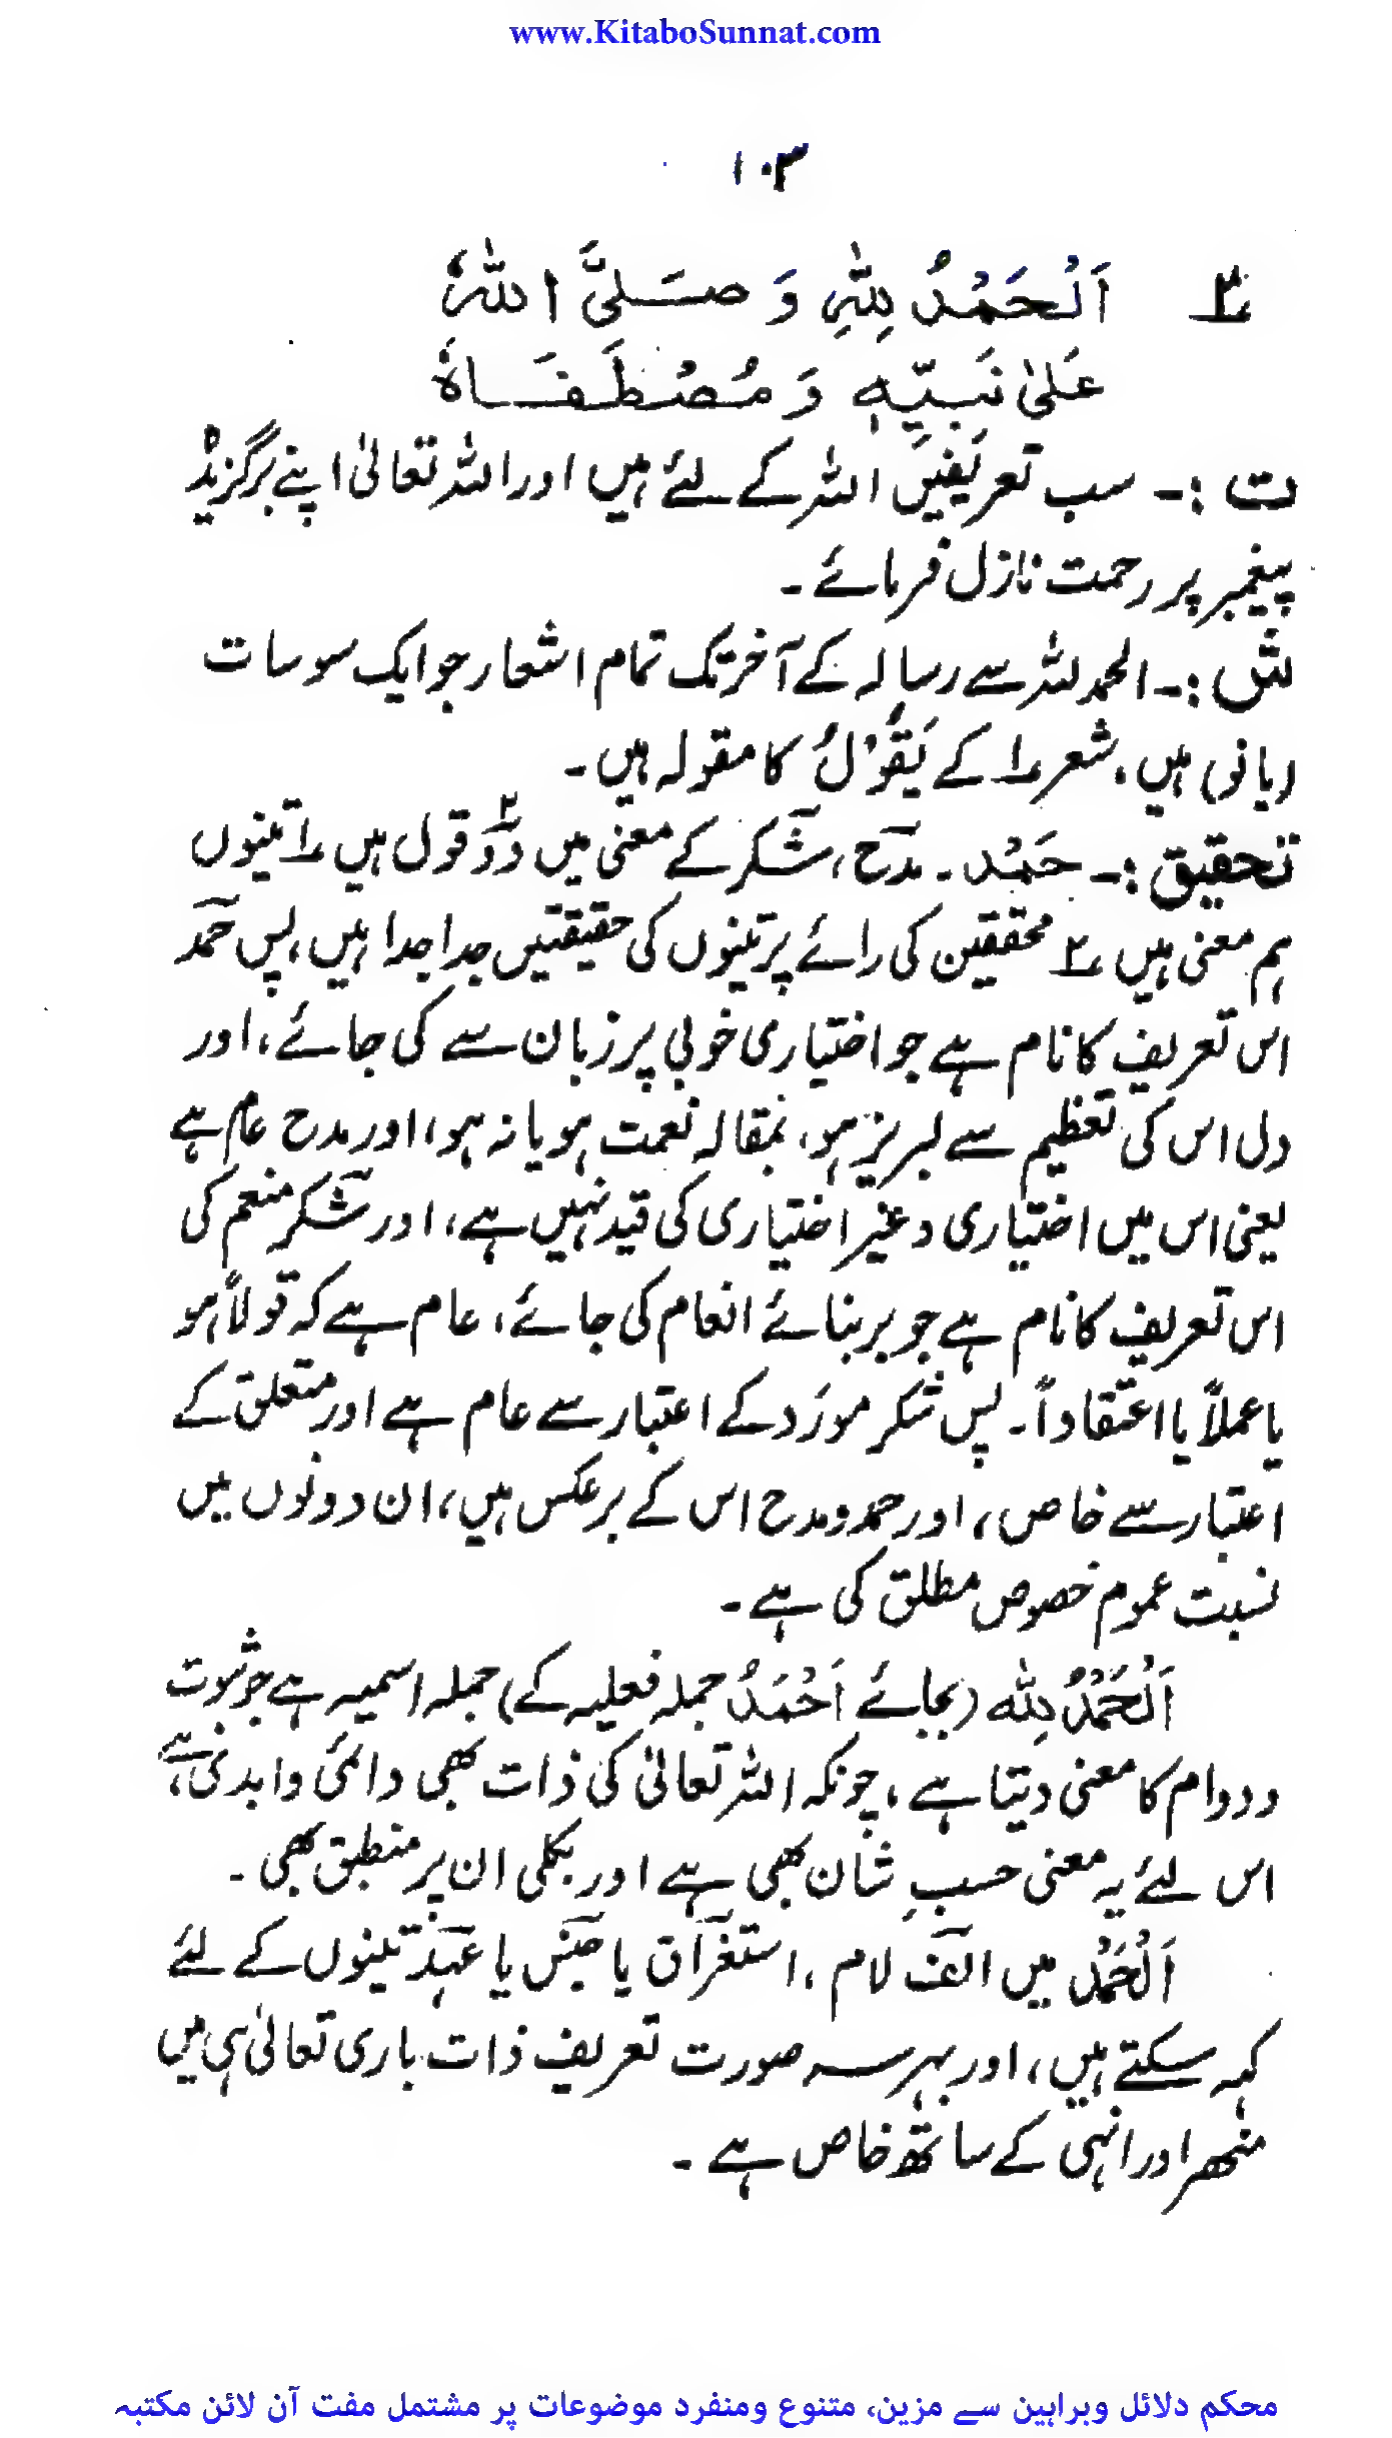 www.KitaboSunnat.com
۱۰۳
۲ اَلْحَمْدُ لِلّٰهِ وَ صَلَّی اللّٰهُ
عَلٰی نَبِیِّهٖ وَ مُصْطَفَاهُ
ت :۔ سب تعریفیں اللہ کے لئے ہیں اور اللہ تعالیٰ اپنے برگزیدہ
پیغمبر پر رحمت نازل فرمائے ۔
ش :۔ الحمد للہ سے رسالہ کے آخر تک تمام اشعار جو ایک سو سات
(یا نو) ہیں، شعر ۱ کے یَقُوْلُ کا مقولہ ہیں ۔
تحقیق :۔ حَمْد ۔ مدح، شکر کے معنی میں دو ۲ قول ہیں ۱ تینوں
ہم معنی ہیں ۲ محققین کی رائے پر تینوں کی حقیقتیں جدا جدا ہیں، پس حمد
اس تعریف کا نام ہے جو اختیاری خوبی پر زبان سے کی جائے، اور
دل اس کی تعظیم سے لبریز ہو، بمقالہ نعمت ہو یا نہ ہو، اور مدح عام ہے
یعنی اس میں اختیاری و غیر اختیاری کی قید نہیں ہے، اور شکر منعم کی
اس تعریف کا نام ہے جو بر بنائے انعام کی جائے، عام ہے کہ قولاً ہو
یا عملاً یا اعتقاداً ۔ پس شکر مورَد کے اعتبار سے عام ہے اور متعلق کے
اعتبار سے خاص، اور حمد و مدح اس کے برعکس ہیں، ان دونوں میں
نسبت عموم خصوص مطلق کی ہے ۔
اَلْحَمْدُ لِلّٰه (بجائے اَحْمَدُ جملہ فعلیہ کے) جملہ اسمیہ ہے جو ثبوت
و دوام کا معنی دیتا ہے، چونکہ اللہ تعالیٰ کی ذات بھی دائمی و ابدی ہے،
اس لئے یہ معنی حسبِ شان بھی ہے اور بکلی ان پر منطبق بھی ۔
اَلْحَمْدُ میں الف لام، استغراق یا جنس یا عہد تینوں کے لئے
کہہ سکتے ہیں، اور بہر سہ صورت تعریف ذات باری تعالیٰ ہی میں
منحصر اور انہی کے ساتھ خاص ہے ۔
محکم دلائل وبراہین سے مزین، متنوع ومنفرد موضوعات پر مشتمل مفت آن لائن مکتبہ